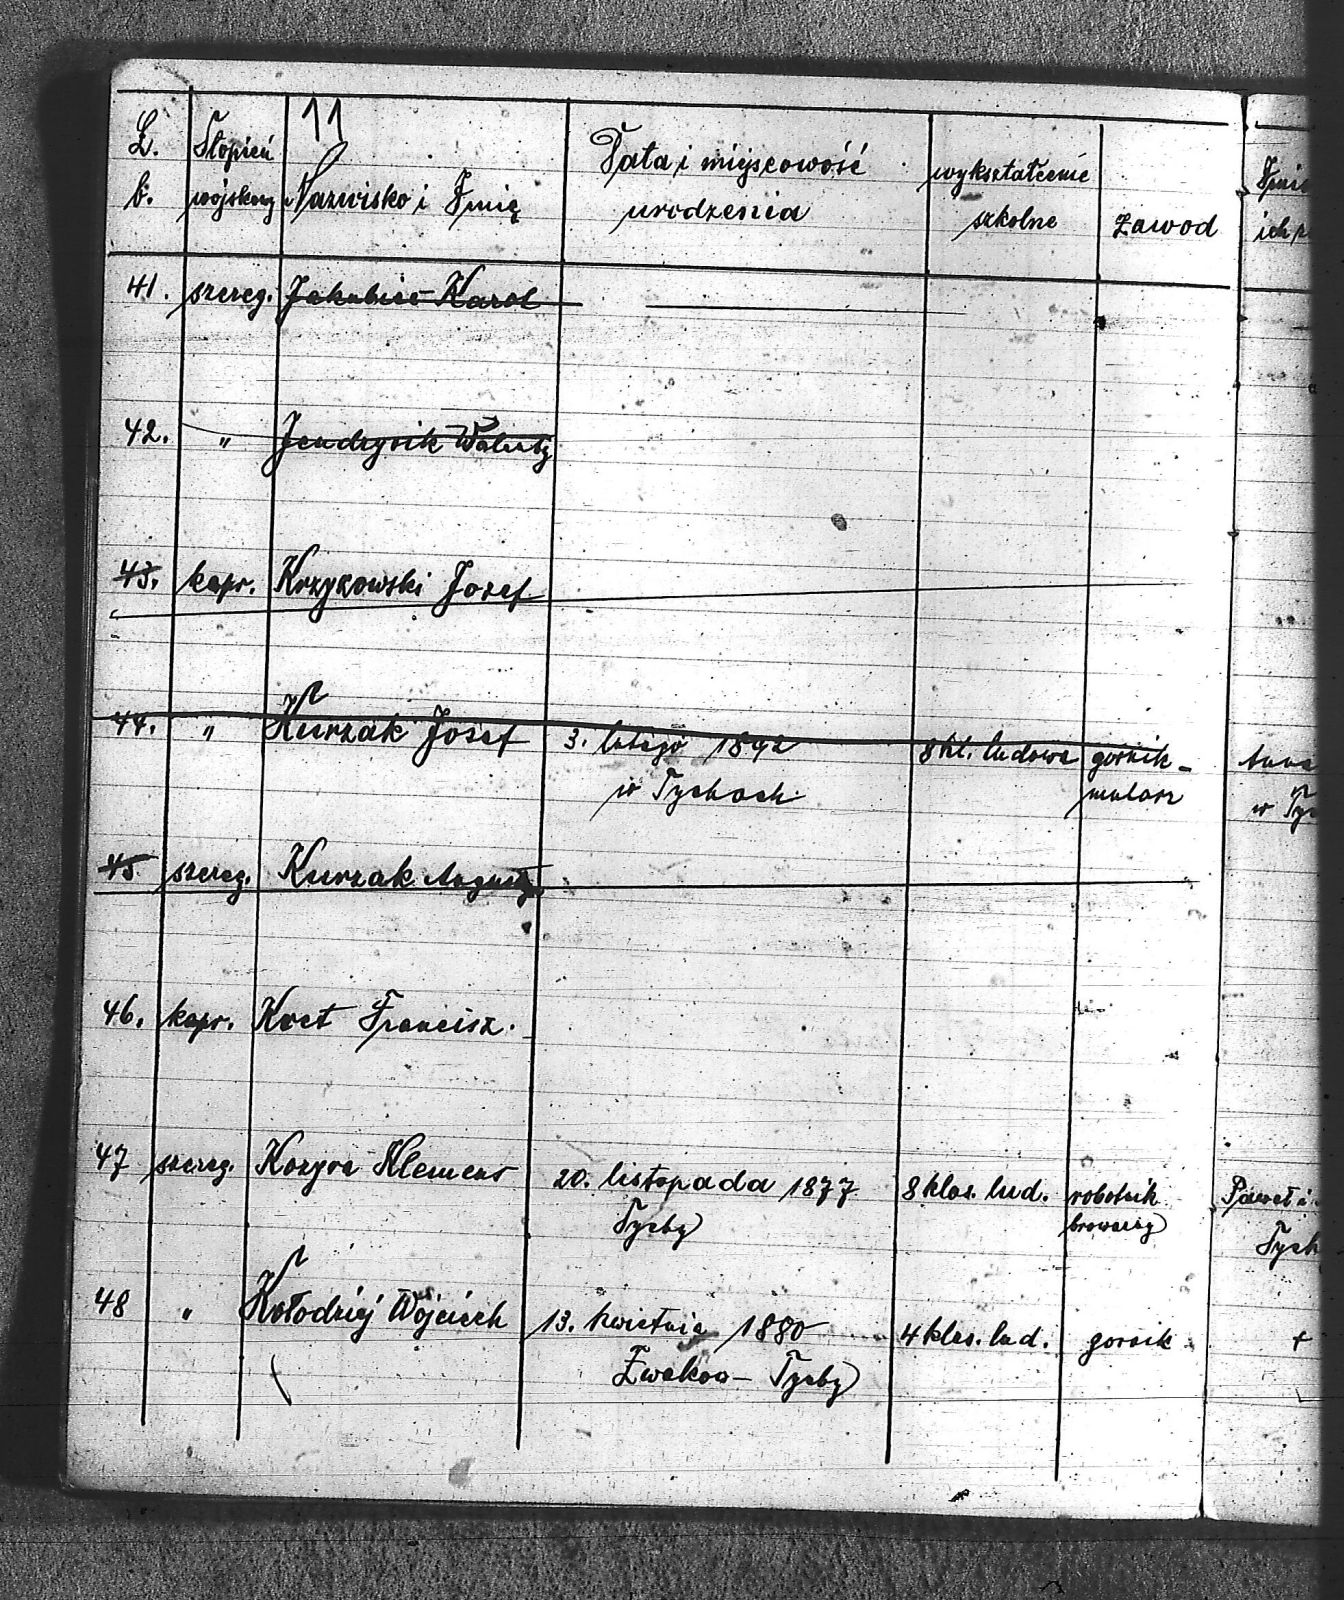 11
L. b. Stopień wojskowy Nazwisko i Imię Data i miejscowość urodzenia wykształcenie szkolne zawod
41. szereg. Jakubiec Karol
42. " Jendrysik Walenty
43. kapr. Krzyżowski Jozef
44. " Kurzak Josef 3. lutego 1892 8 kl. ludowa gornik- Anna
w Tychach mularz w Tyc
45 szereg. Kurzak August
46. kapr. Kret Francisz.
47 szereg. Kozyra Klemens 20. listopada 1877 8 klas. lud. robotnik Paweł i
Tychy browarny Tych
48 " Kołodziej Wojciech 13. kwietnia 1880 4 klas. lud. gornik +
Zwakow - Tychy